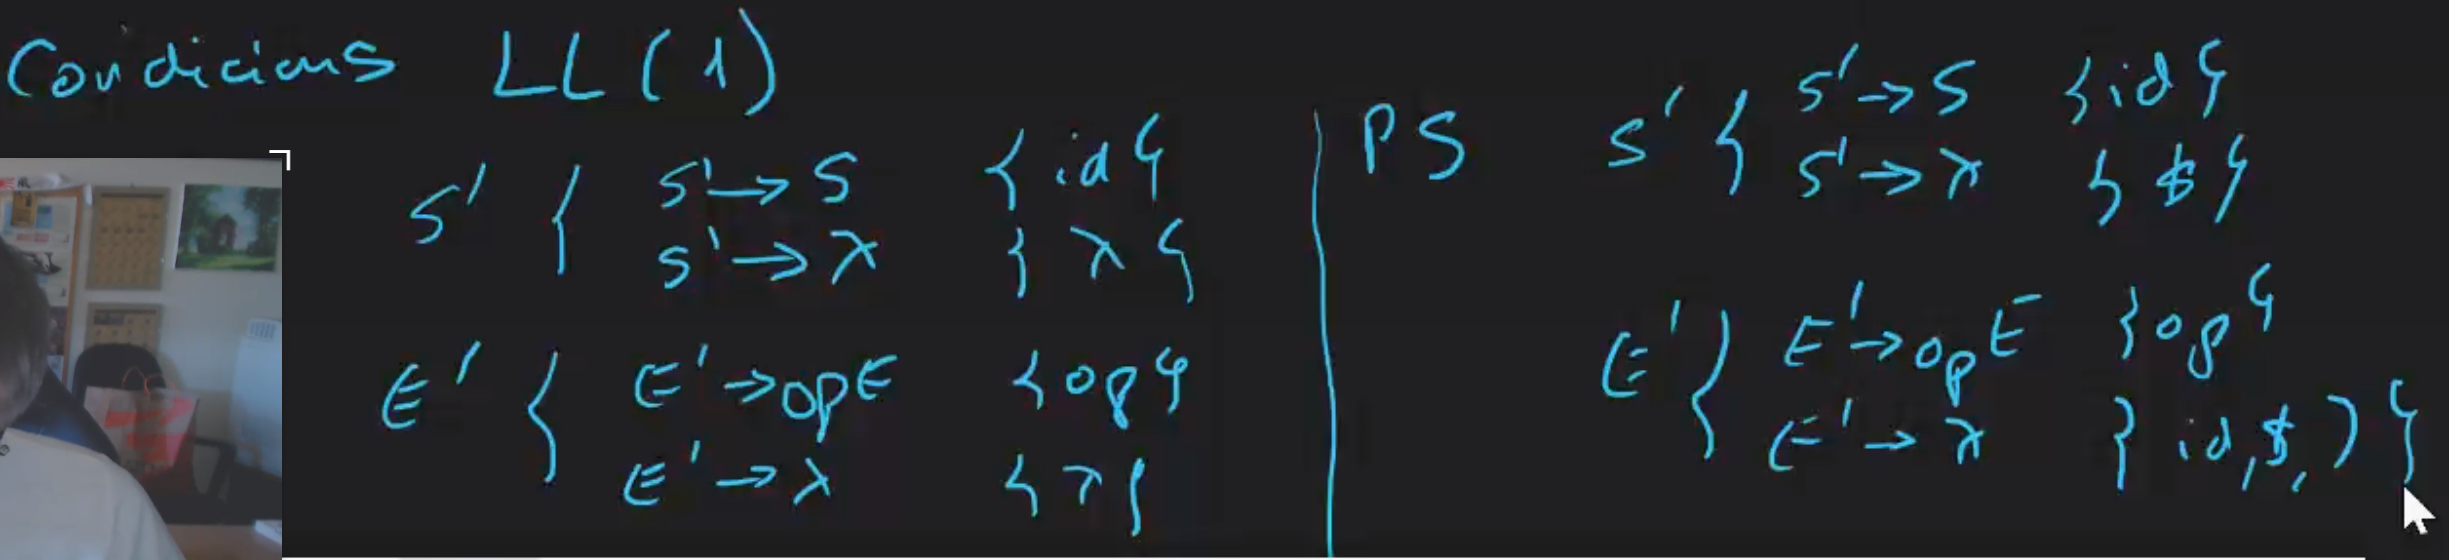 Condicions LL(1)
S' { S' → S {id}
S' → λ {λ}
E' { E' → op E {op}
E' → λ {λ}
PS S' { S' → S {id}
S' → λ {$}
E' { E' → op E {op}
E' → λ {id, $, )}